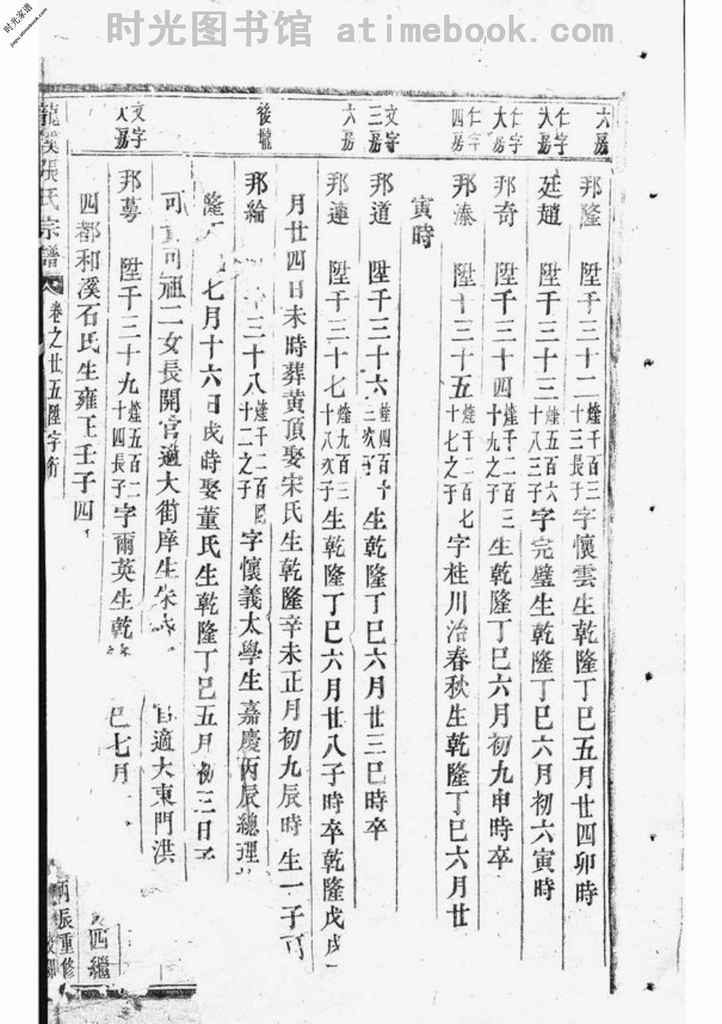 时光图书馆 atimebook.com
时光家谱
六房
邦隆 陞千三十二 煃千百三十三長子 字懷雲生乾隆丁巳五月廿四卯時
仁字
廷趙 陞千三十三 煃五百六十八三子 字完璧生乾隆丁巳六月初六寅時
仁字大房
邦奇 陞千三十四 煃千二百三十九之子 生乾隆丁巳六月初九申時卒
仁字四房
邦溱 陞千三十五 煃千二百七十七之子 字桂川治春秋生乾隆丁巳六月廿
寅時
文字三房
邦道 陞千三十六 煃四百十 生乾隆丁巳六月廿三巳時卒
六房
邦蓮 陞千三十七 煃九百三十八次子 生乾隆丁巳六月廿八子時卒乾隆戊戌
月廿四日未時葬黄頂娶宋氏生乾隆辛未正月初九辰時 生一子可
後壠
邦綸 三十八 煃千二百 十二之子 字懷義太學生嘉慶丙辰總理
隆 七月十六日戌時娶董氏生乾隆丁巳五月初三日
可 可祖二女長開官適大街庠生朱 適大東門洪
文字
邦募 陞千三十九 煃五百二十四長子 字爾英生乾 巳七月
四都和溪石氏生雍正壬子四
龍溪張氏宗譜 卷之廿五陞字行 四繼
丙辰重修